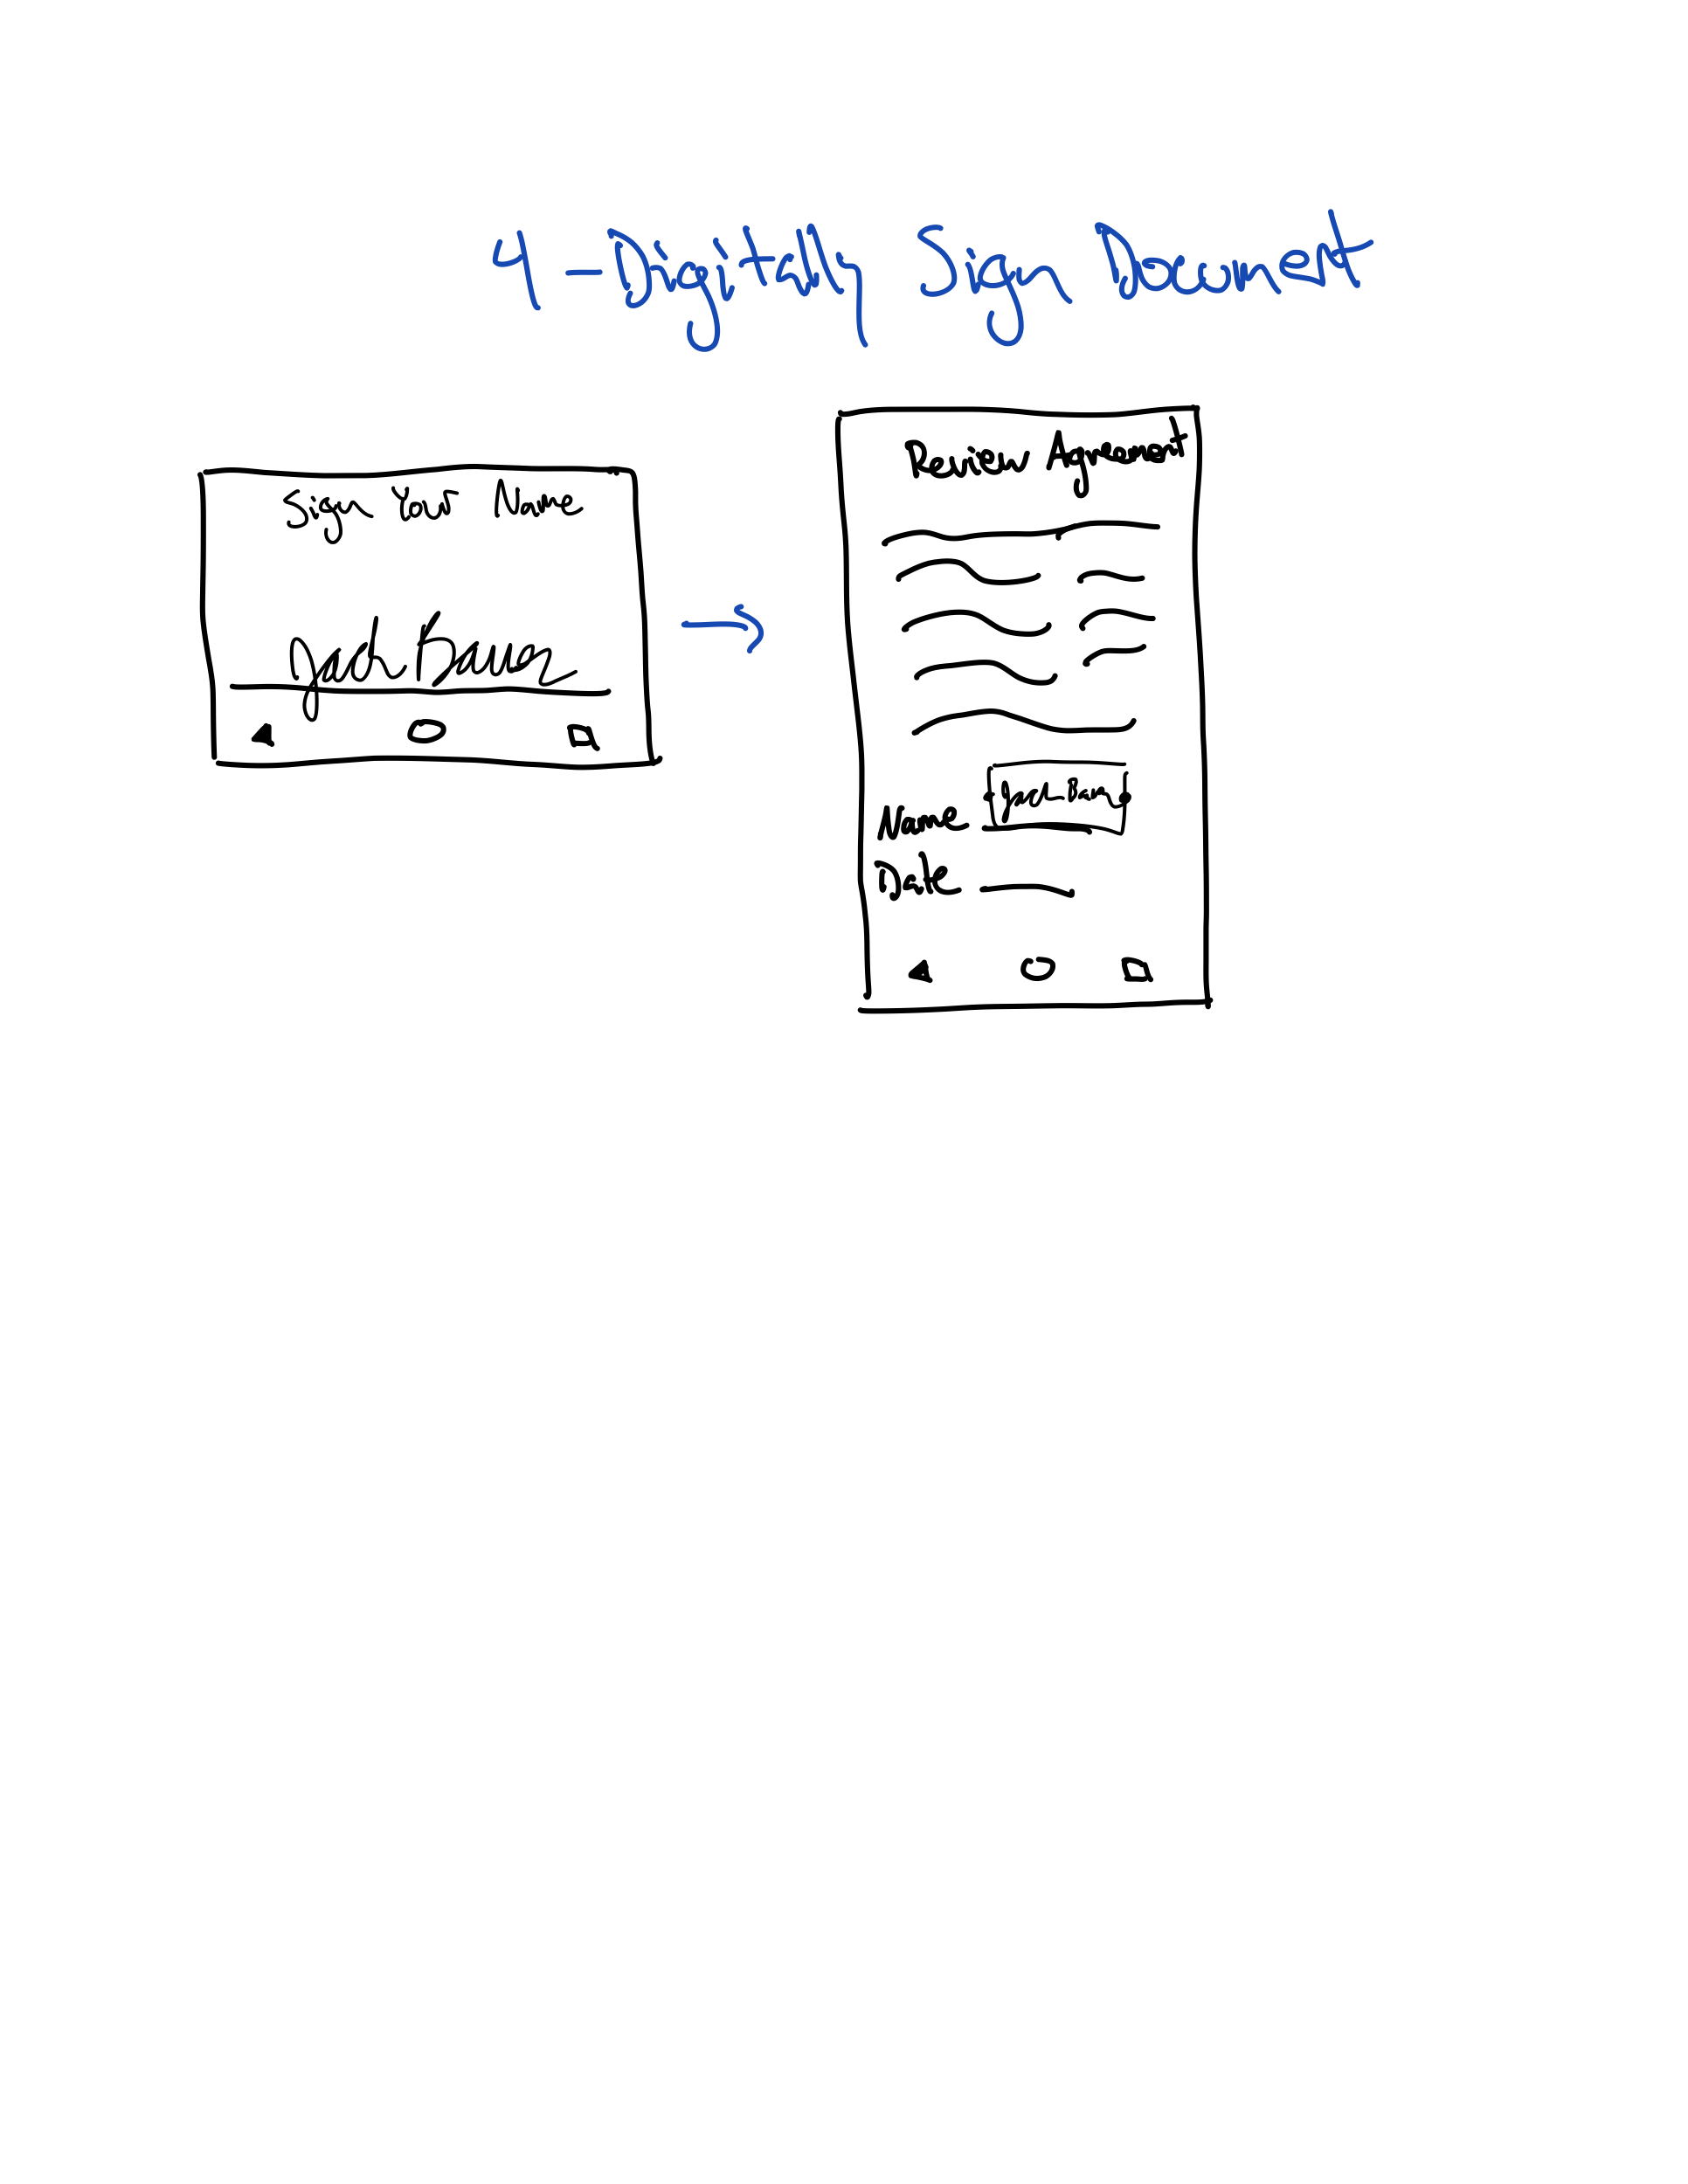 4 - Digitally Sign Document
Sign Your Name
Jack Bauer
Review Agreement
Name Jack Bauer
Date